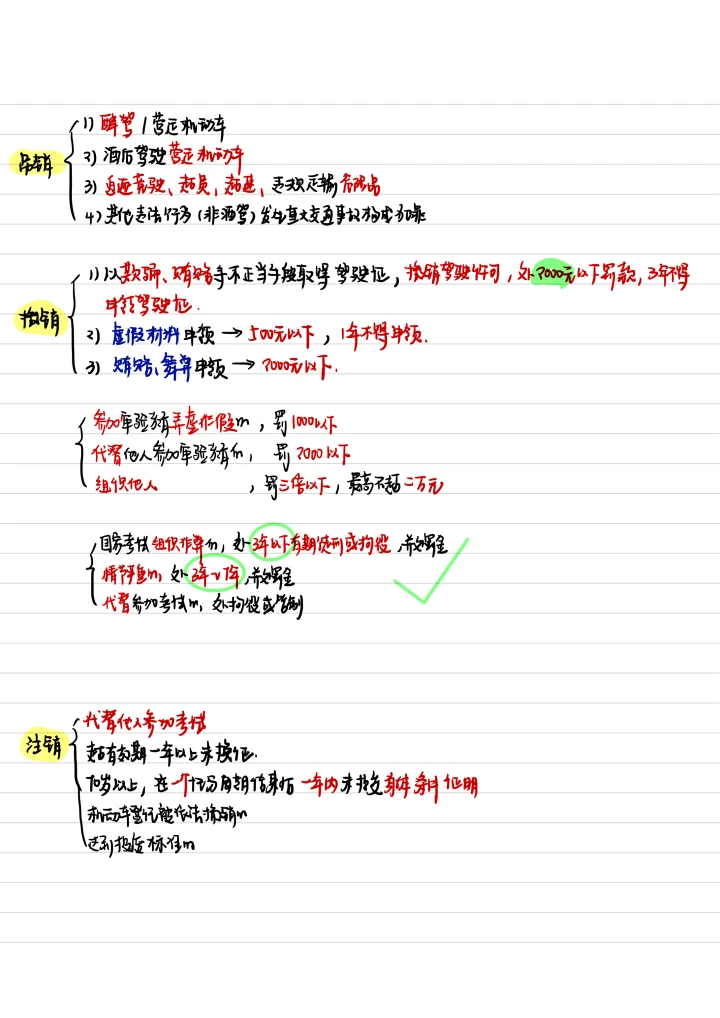 吊销
1) 醉驾 / 营运机动车
2) 酒后驾驶营运机动车
3) 追逐竞驶、超员、超速、违规运输危险品
4) 其他违法行为 (非酒驾) 发生重大交通事故构成犯罪
撤销
1) 以欺骗、贿赂等不正当手段取得驾驶证, 撤销驾驶许可, 处2000元以下罚款, 3年不得
申领驾驶证.
2) 虚假材料申领 → 500元以下, 1年不得申领.
3) 贿赂、舞弊申领 → 2000元以下.
参加审验教育弄虚作假的, 罚1000以下
代替他人参加审验教育的, 罚 2000以下
组织他人 , 罚三倍以下, 最高不超二万元
国家考试组织作弊的, 处3年以下有期徒刑或拘役, 并处罚金
情节严重的, 处3年~7年, 并处罚金
代替参加考试的, 处拘役或管制
注销
代替他人参加考试
超有效期一年以上未换证.
70岁以上, 在一个记分周期结束后一年内未提交身体条件证明
机动车登记被依法撤销的
达到报废标准的